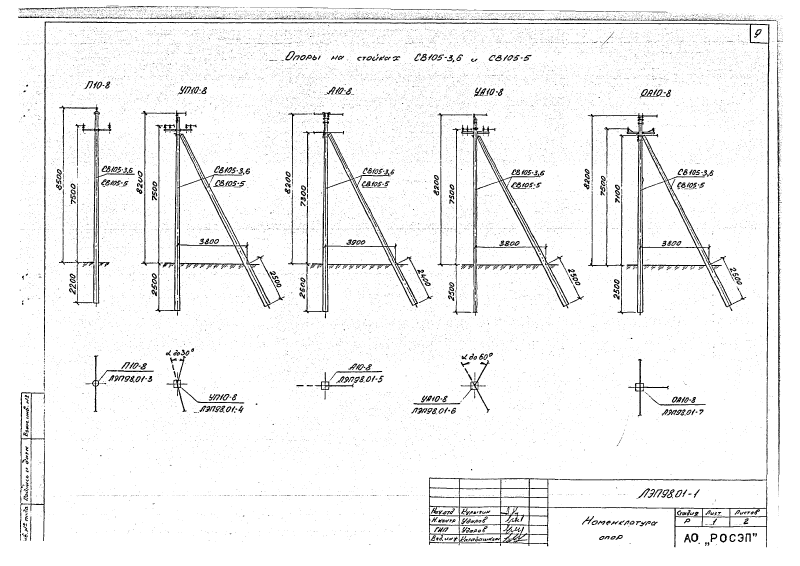 9
Опоры на стойках СВ105-3,6 и СВ105-5
П10-8
УП10-8
А10-8
УА10-8
ОА10-8
8500
7500
2200
СВ105-3,6
СВ105-5
8200
7500
2500
СВ105-3,6
СВ105-5
3800
2500
8200
7300
2600
СВ105-3,6
СВ105-5
3900
2400
8200
7500
2500
СВ105-3,6
СВ105-5
3800
2500
8200
7500
7100
2500
СВ105-3,6
СВ105-5
3800
2500
П10-8
ЛЭП98.01-3
α до 30°
УП10-8
ЛЭП98.01-4
А10-8
ЛЭП98.01-5
α до 60°
УА10-8
ЛЭП98.01-6
ОА10-8
ЛЭП98.01-7
Взам. инв. №
Подпись и дата
Инв. № подл.
ЛЭП98.01-1
Нач.отд
Н.контр Ударов
ГИП Ударов
Вед.инж
Номенклатура
опор
Стадия Лист Листов
Р 1 2
АО „РОСЭП"